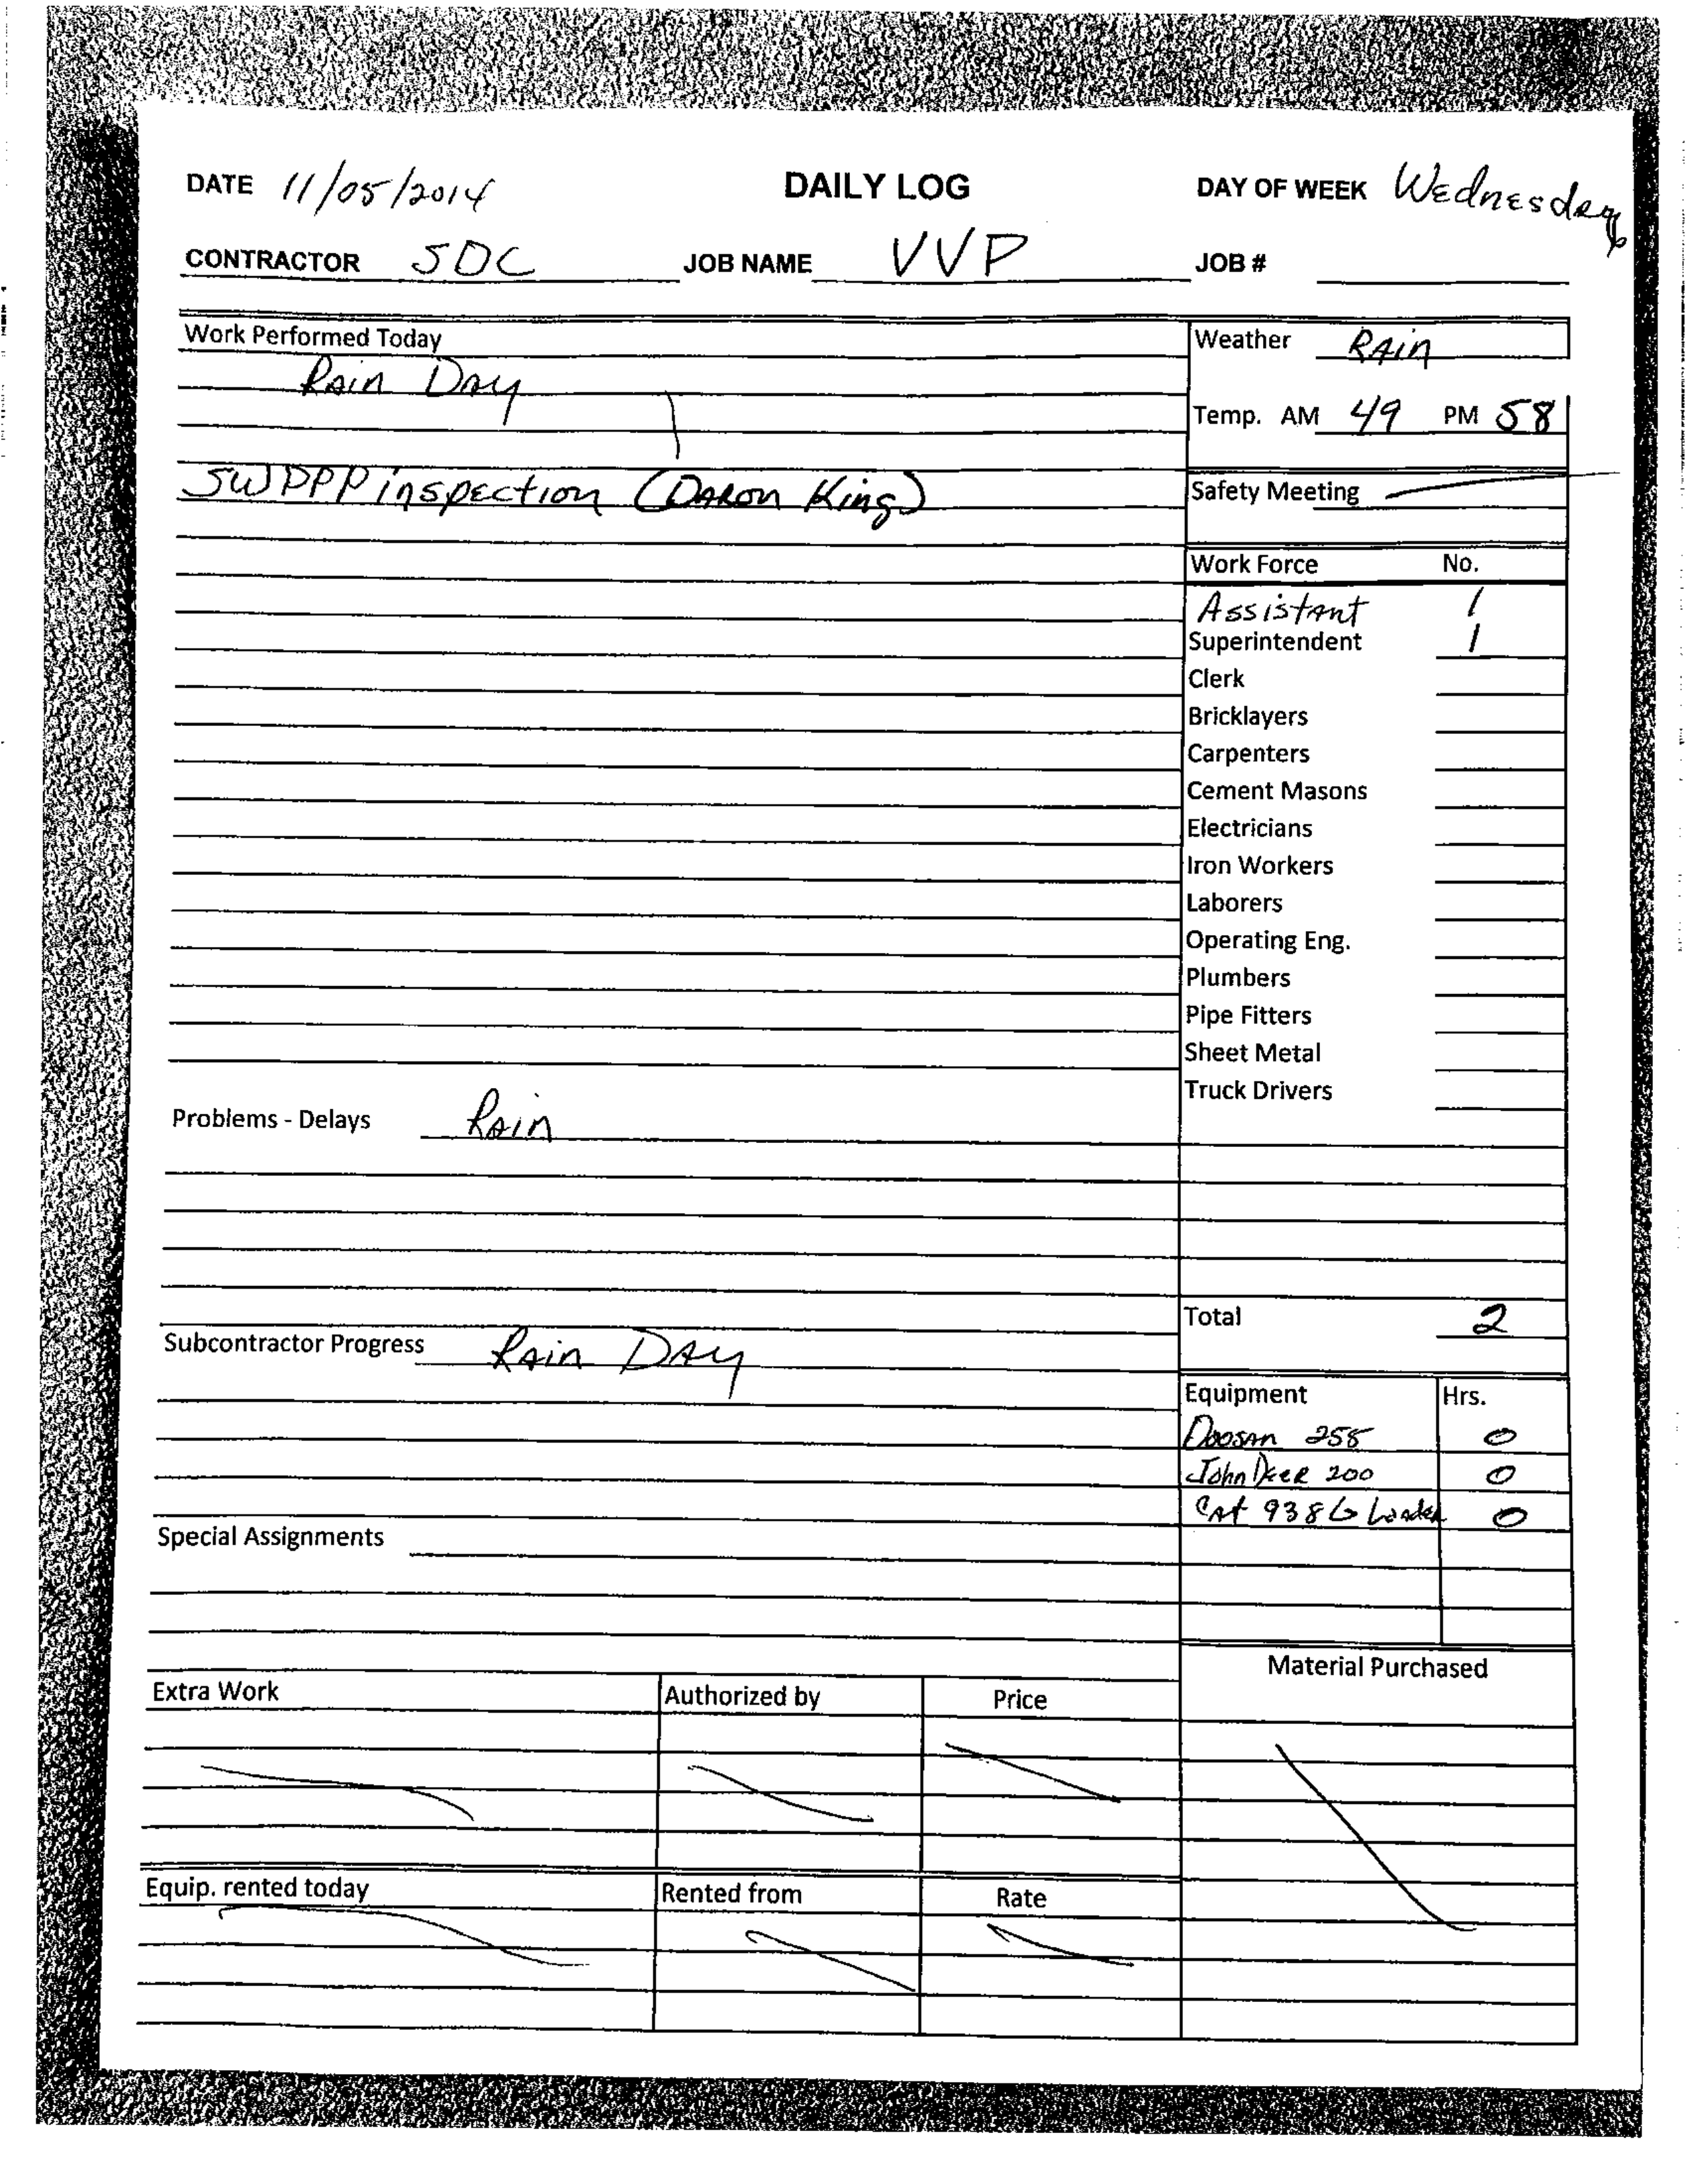 DATE 11/05/2014 DAILY LOG DAY OF WEEK Wednesday
CONTRACTOR SDC JOB NAME VVP JOB #
Work Performed Today
Rain Day
SWPPP inspection (Daron King)
Weather Rain
Temp. AM 49 PM 58
Safety Meeting
Work Force No.
Assistant 1
Superintendent 1
Clerk
Bricklayers
Carpenters
Cement Masons
Electricians
Iron Workers
Laborers
Operating Eng.
Plumbers
Pipe Fitters
Sheet Metal
Truck Drivers
Problems - Delays Rain
Total 2
Subcontractor Progress Rain Day
Equipment Hrs.
Doosan 255 0
John Deer 200 0
Cat 938G Loader 0
Special Assignments
Material Purchased
Extra Work Authorized by Price
Equip. rented today Rented from Rate